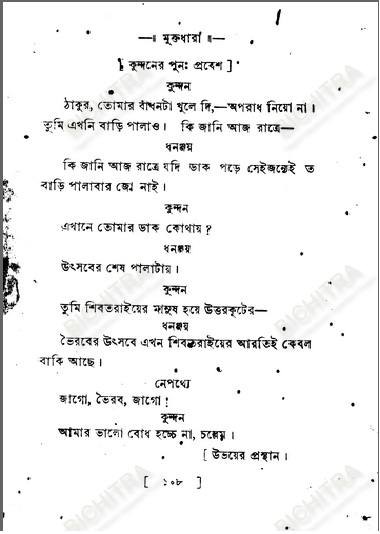 —॥ মুক্তধারা ॥—
[ কুন্দনের পুনঃ প্রবেশ ]
কুন্দন
ঠাকুর, তোমার বাঁধনটা খুলে দি,—অপরাধ নিয়ো না।
তুমি এখনি বাড়ি পালাও। কি জানি আজ রাত্রে—
ধনঞ্জয়
কি জানি আজ রাত্রে যদি ডাক পড়ে সেইজন্যেই ত
বাড়ি পালাবার জো নাই।
কুন্দন
এখানে তোমার ডাক কোথায়?
ধনঞ্জয়
উৎসবের শেষ পালাটায়।
কুন্দন
তুমি শিবতরাইয়ের মানুষ হয়ে উত্তরকূটের—
ধনঞ্জয়
ভৈরবের উৎসবে এখন শিবতরাইয়ের আরতিই কেবল
বাকি আছে।
নেপথ্যে
জাগো, ভৈরব, জাগো!
কুন্দন
আমার ভালো বোধ হচ্চে না, চল্লেম।
[ উভয়ের প্রস্থান।
[ ১০৮ ]
BICHITRA